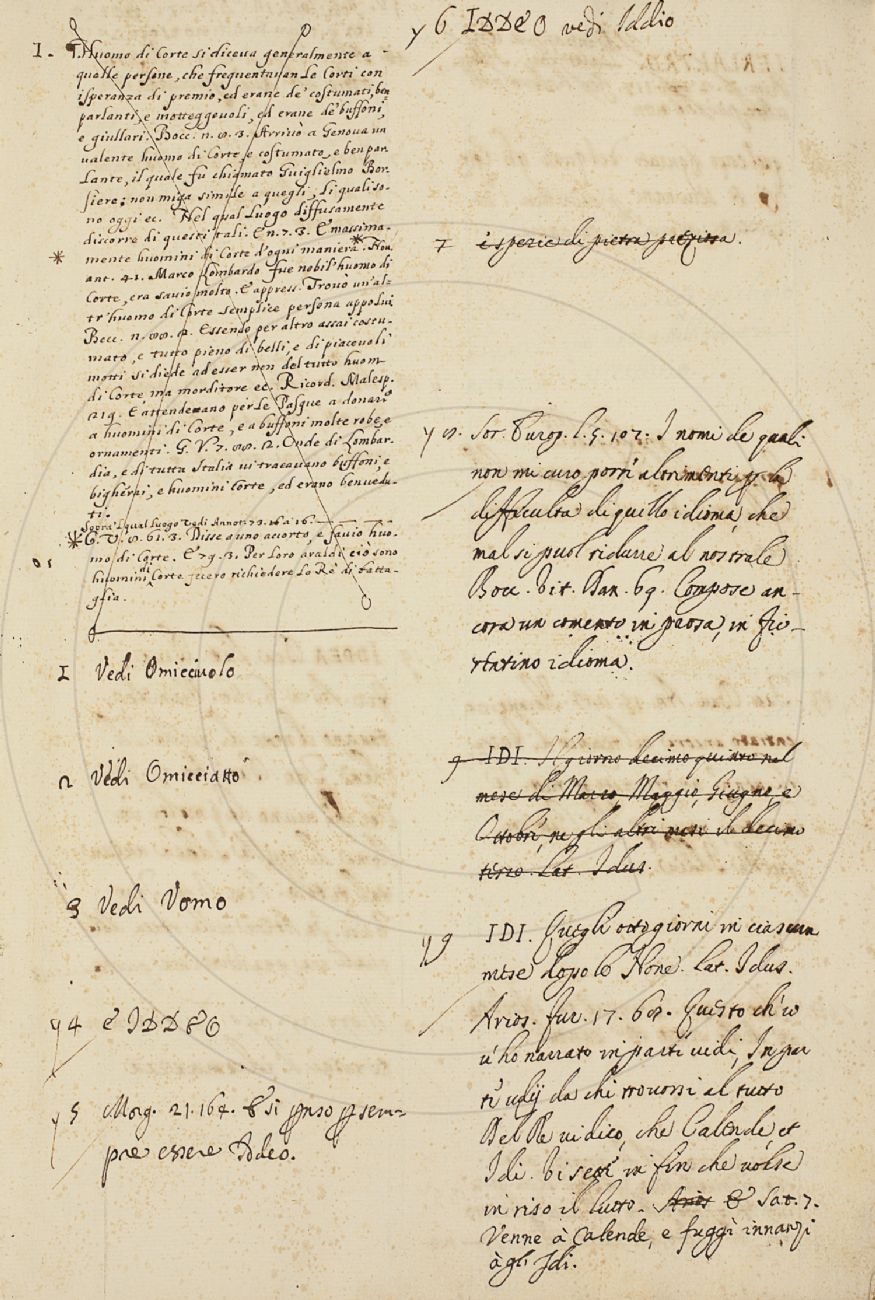 1. Huomo di Corte si diceva generalmente a
quelle persone, che frequentavan le Corti con
isperanza di premio, ed erane de' costumati, ben
parlanti, e motteggevoli, ed erane de' buffoni,
e giullari. Bocc. n. 8. 3. Arrivò a Genova un
valente huomo di Corte, e costumato, e ben par-
lante, il quale fu chiamato Guiglielmo Bor-
siere; non miga simile a quegli, li quali so-
no oggi ec. Nel qual luogo diffusamente
discorre di questi tali. E n. 7. 3. E massima-
mente huomini di Corte d'ogni maniera. Nou
ant. 41. Marco Lombardo fue nobil' huomo di
Corte, era savio molto. E appress. Trovò un'al-
tr'huomo di Corte semplice persona appo lui
Bocc. n. 88. 2. Essendo per altro assai costu-
mato, e tutto pieno di belli, e di piacevoli
motti si diede ad esser non del tutto huom
di Corte, ma morditore ec. Ricord. Malesp.
219. E attendevano per le Pasque a donare
a huomini di Corte, e a buffoni molte robe, e
ornamenti. G. V. 7. 88. 2. Onde di Lombar-
dia, e di tutta Italia vi traevano buffoni, e
bigherai, e huomini Corte, ed erano benvedu-
ti.
Sopra 'l qual luogo vedi Annot. 73. 16 a 16.
G. V. 8. 61. 3. Disse uno accorto, e savio huo-
mo di Corte. E 7. 9. 3. Per loro araldi, ciò sono
huomini di Corte fecero richiedere lo Re di batta-
glia.
1 Vedi Omicciuolo
2 Vedi Omicciatto
3 Vedi Vomo
y 4 e IDDEO
y 5 Morg. 21. 164. E si penso per sem=
pre essere Iddeo.
y 6 IDDEO vedi Iddio
7 è spezie di pietra preziosa.
y 8. Sor. Purog. l. 5. 107. I nomi de quali
non mi curo porri altrimenti per la
difficultà di quello idioma, che
mal si può ridurre al nostrale
Bocc. Vit. Dan. 69. Compose an-
cora un comento in prosa, in fio-
rentino idioma.
9 IDI. Il giorno decimo quinto nel
mese di Marzo, Maggio, Giugno, e
Ottobre, negli altri mesi il decimo
terzo. Lat. Idus.
y 9 IDI. Quegli otto giorni in ciascun
mese dopo le None. Lat. Idus.
Arios. fur. 17. 68. Questo ch'io
v'ho narrato in parte vidi, In par
te udij da chi trovossi al tutto
Del Re vi dico, che Calende, et
Idi. Vi stette in fin che volse
in riso il lutto. Arios E Sat. 7.
Venne à Calende, e fuggì innanzi
à gli Idi.